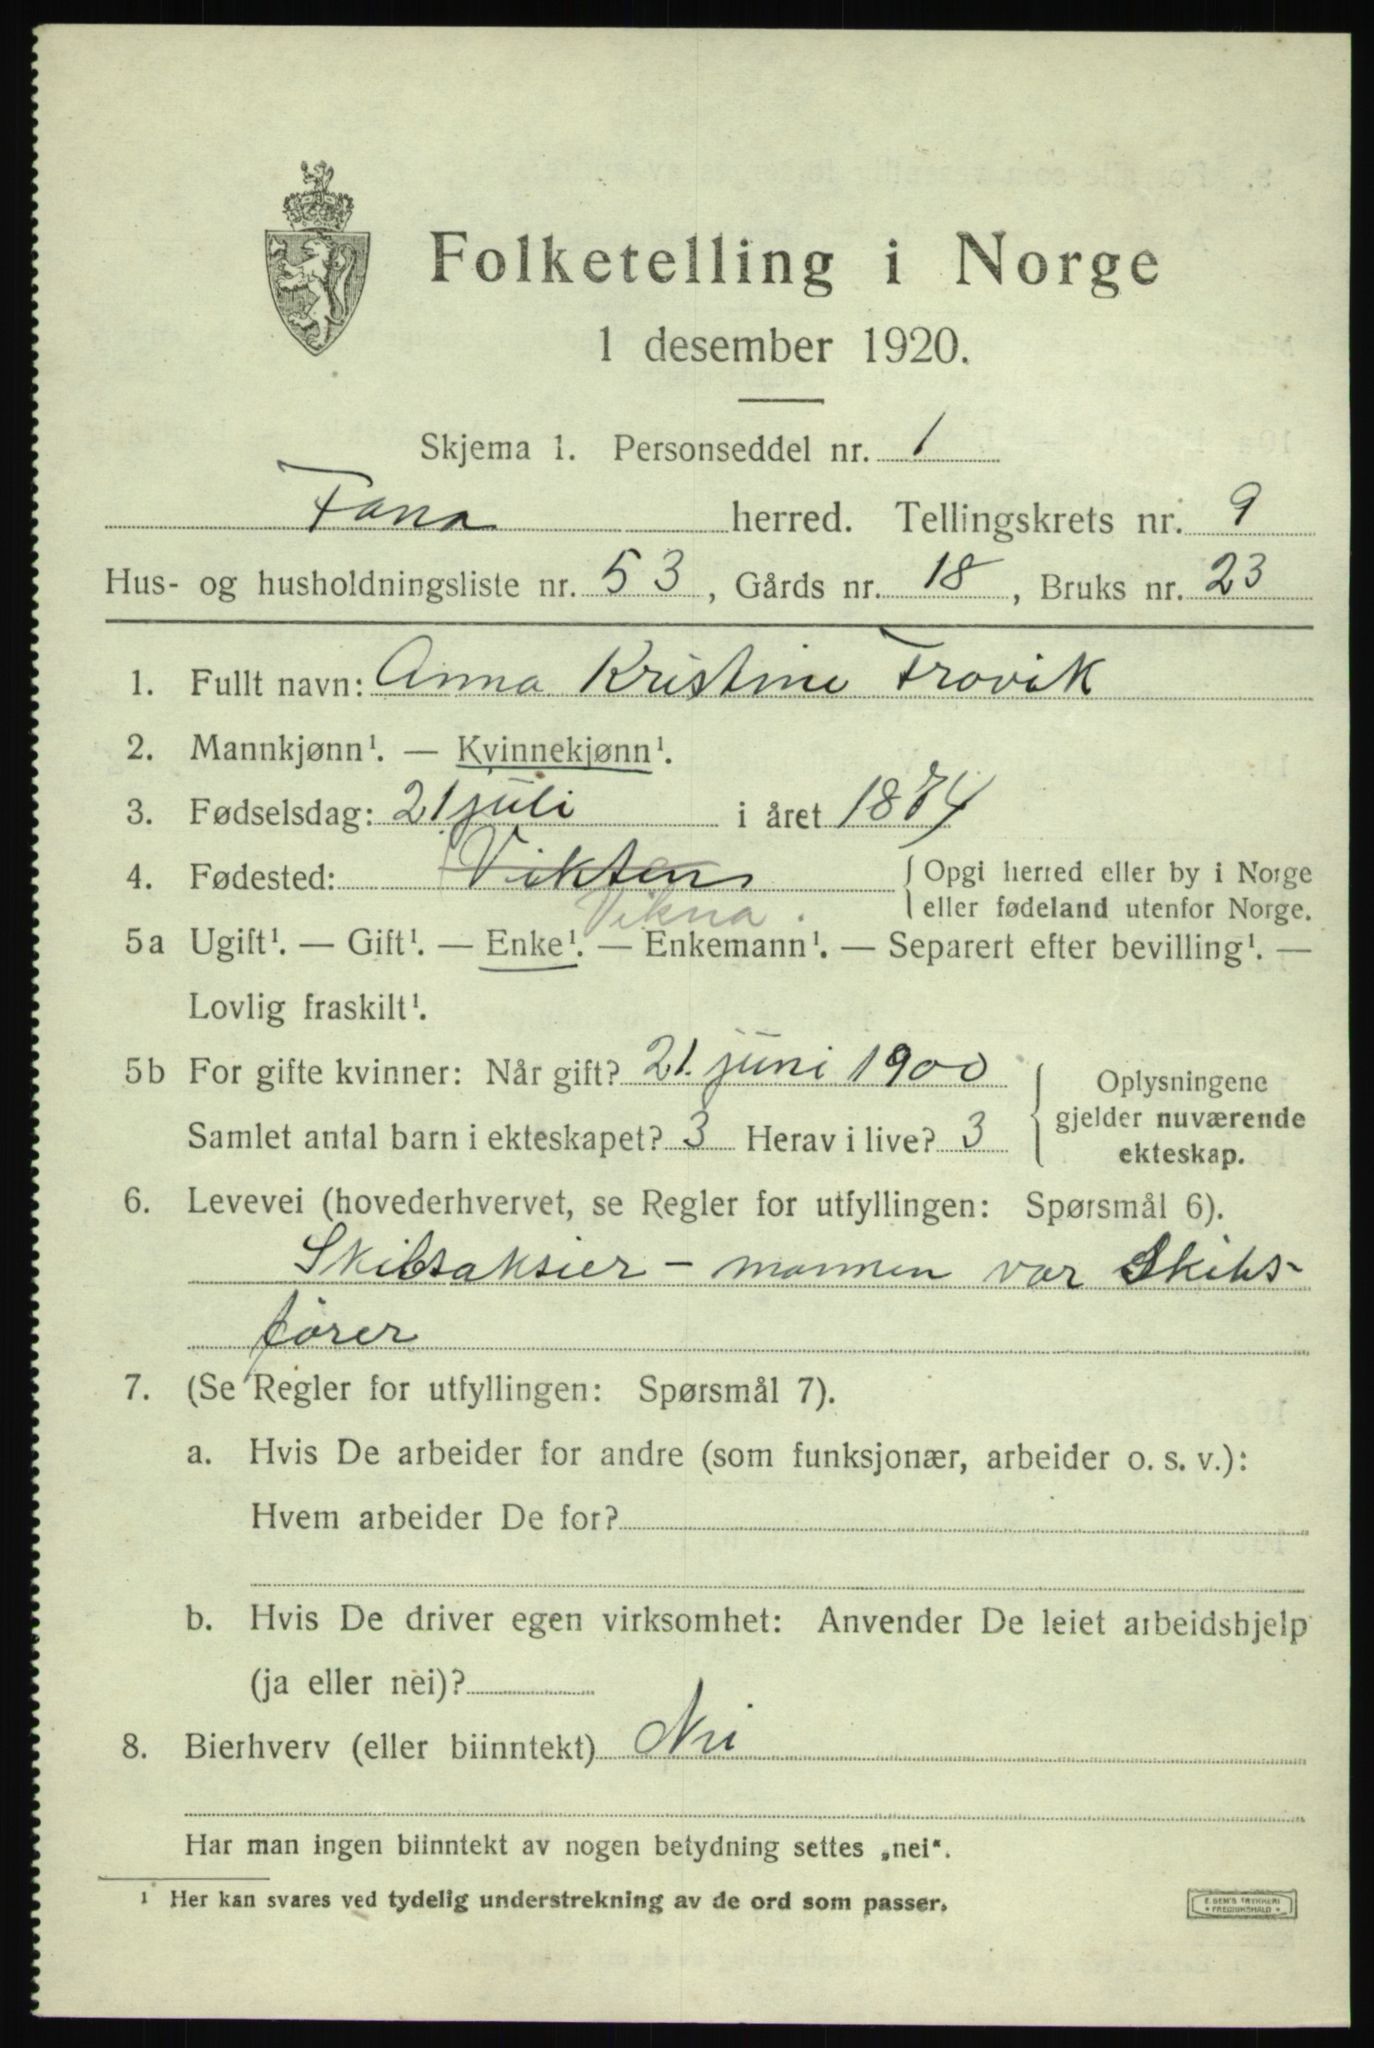 Folketelling i Norge
1 desember 1920.
Skjema 1. Personseddel nr. 1
Fana herred. Tellingskrets nr. 9
Hus- og husholdningsliste nr. 53, Gårds nr. 18, Bruks nr. 23
1. Fullt navn: Anna Kristine Frovik
2. Mannkjønn¹. — Kvinnekjønn¹.
3. Fødselsdag: 21 juli i året 1874
4. Fødested: Vikten { Opgi herred eller by i Norge
eller fødeland utenfor Norge.
Vikna.
5a Ugift¹. — Gift¹. — Enke¹. — Enkemann¹. — Separert efter bevilling¹. —
Lovlig fraskilt¹.
5b For gifte kvinner: Når gift? 21. juni 1900
Samlet antal barn i ekteskapet? 3 Herav i live? 3
Oplysningene
gjelder nuværende
ekteskap.
6. Levevei (hovederhvervet, se Regler for utfyllingen: Spørsmål 6).
Skibsaksier - mannen var Skibs-
fører
7. (Se Regler for utfyllingen: Spørsmål 7).
a. Hvis De arbeider for andre (som funksjonær, arbeider o. s. v.):
Hvem arbeider De for?
b. Hvis De driver egen virksomhet: Anvender De leiet arbeidshjelp
(ja eller nei)?
8. Bierhverv (eller biinntekt) Nei
Har man ingen biinntekt av nogen betydning settes „nei“.
¹ Her kan svares ved tydelig understrekning av de ord som passer.
E. SEM'S TRYKKERI
* FREDRIKSHALD *